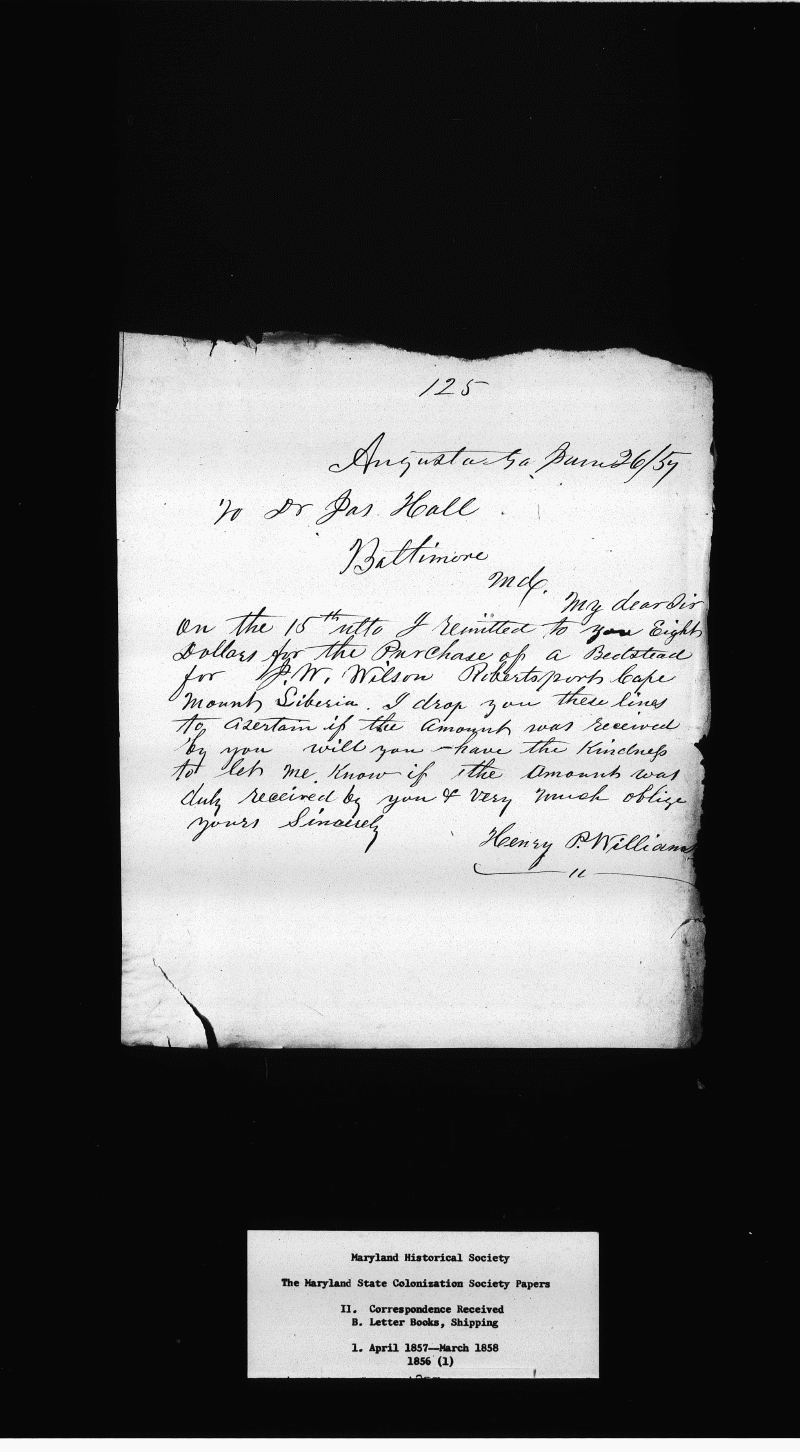 125
Augusta Ga June 26/57
To Dr Jas. Hall
Baltimore
Md.
My dear Sir
On the 15th ulto I remitted to you Eight
Dollars for the Purchase of a Bedstead
for P.W. Wilson Robertsport Cape
Mount Liberia. I drop you these lines
to asertain if the amount was received
by you will you - have the Kindness
to let me Know if the amount was
duly received by you & very much oblige
yours Sincerely
Henry P. Williams
Maryland Historical Society
The Maryland State Colonization Society Papers
II. Correspondence Received
B. Letter Books, Shipping
1. April 1857—March 1858
1856 (1)